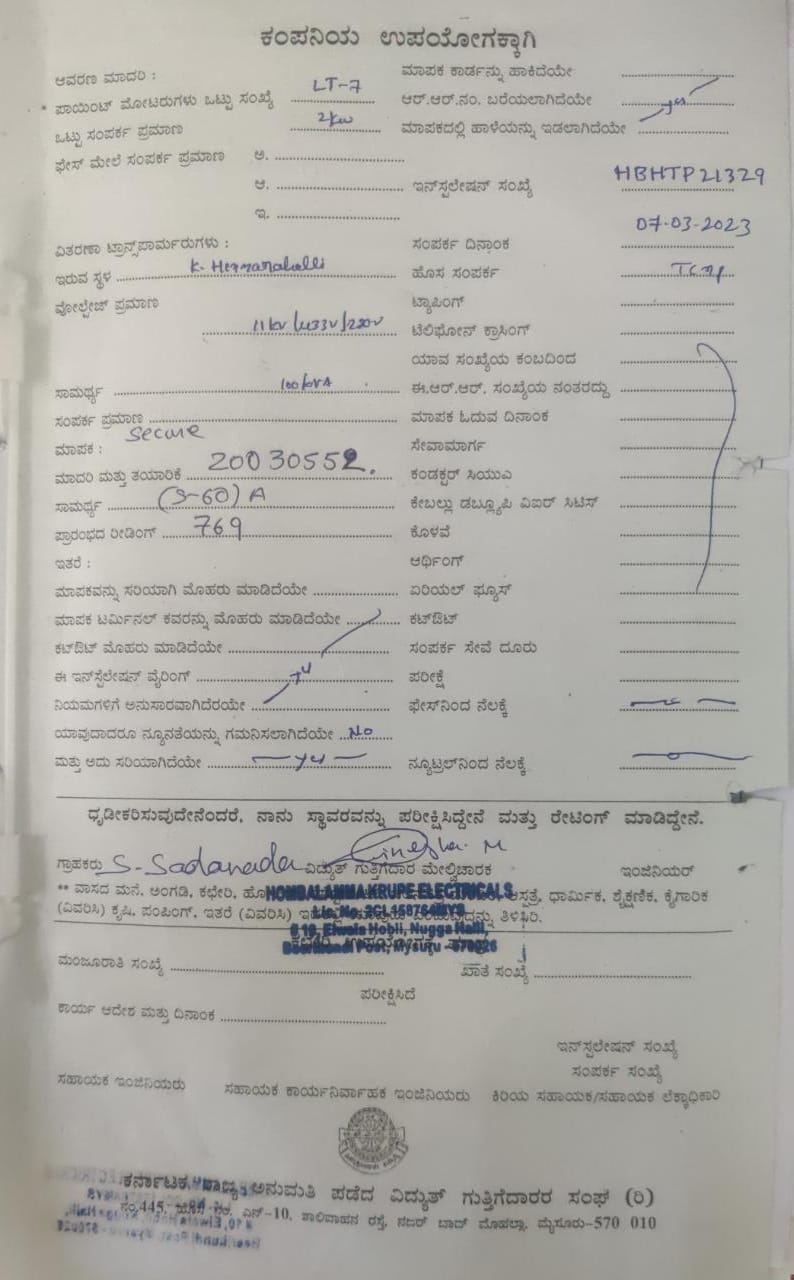 ಕಂಪನಿಯ ಉಪಯೋಗಕ್ಕಾಗಿ
ಆವರಣ ಮಾದರಿ : ಮಾಪಕ ಕಾರ್ಡನ್ನು ಹಾಕಿದೆಯೇ
* ಪಾಯಿಂಟ್ ಮೋಟರುಗಳು ಒಟ್ಟು ಸಂಖ್ಯೆ LT-7 ಆರ್.ಆರ್.ನಂ. ಬರೆಯಲಾಗಿದೆಯೇ yes
ಒಟ್ಟು ಸಂಪರ್ಕ ಪ್ರಮಾಣ 2kw ಮಾಪಕದಲ್ಲಿ ಹಾಳೆಯನ್ನು ಇಡಲಾಗಿದೆಯೇ
ಫೇಸ್ ಮೇಲೆ ಸಂಪರ್ಕ ಪ್ರಮಾಣ ಅ.
ಆ. ಇನ್‌ಸ್ಟಲೇಷನ್ ಸಂಖ್ಯೆ HBHTP21329
ಇ.
ವಿತರಣಾ ಟ್ರಾನ್ಸ್‌ಫಾರ್ಮರುಗಳು : ಸಂಪರ್ಕ ದಿನಾಂಕ 07-03-2023
ಇರುವ ಸ್ಥಳ K. Hemmanahalli ಹೊಸ ಸಂಪರ್ಕ
ವೋಲ್ಟೇಜ್ ಪ್ರಮಾಣ ಟ್ಯಾಪಿಂಗ್
11kv/433v/220v ಟೆಲಿಫೋನ್ ಕ್ರಾಸಿಂಗ್
ಯಾವ ಸಂಖ್ಯೆಯ ಕಂಬದಿಂದ
ಸಾಮರ್ಥ್ಯ 100kVA ಈ.ಆರ್.ಆರ್. ಸಂಖ್ಯೆಯ ನಂತರದ್ದು
ಸಂಪರ್ಕ ಪ್ರಮಾಣ ಮಾಪಕ ಓದುವ ದಿನಾಂಕ
ಮಾಪಕ : secure ಸೇವಾಮಾರ್ಗ
ಮಾದರಿ ಮತ್ತು ತಯಾರಿಕೆ 20030552. ಕಂಡಕ್ಟರ್ ಸಿಯುವಿ
ಸಾಮರ್ಥ್ಯ (5-60) A ಕೇಬಲ್ಲು ಡಬ್ಲ್ಯೂಪಿ ವಿಐರ್ ಸಿಟಿಸ್
ಪ್ರಾರಂಭದ ರೀಡಿಂಗ್ 769 ಕೊಳವೆ
ಇತರೆ : ಅರ್ಥಿಂಗ್
ಮಾಪಕವನ್ನು ಸರಿಯಾಗಿ ಮೊಹರು ಮಾಡಿದೆಯೇ ಏರಿಯಲ್ ಫ್ಯೂಸ್
ಮಾಪಕ ಟರ್ಮಿನಲ್ ಕವರನ್ನು ಮೊಹರು ಮಾಡಿದೆಯೇ ಕಟ್‌ಔಟ್
ಕಟ್‌ಔಟ್ ಮೊಹರು ಮಾಡಿದೆಯೇ ಸಂಪರ್ಕ ಸೇವೆ ದೂರು
ಈ ಇನ್‌ಸ್ಟೆಲೇಷನ್ ವೈರಿಂಗ್ ಪರೀಕ್ಷೆ
ನಿಯಮಗಳಿಗೆ ಅನುಸಾರವಾಗಿದೆರಯೇ ಫೇಸ್‌ನಿಂದ ನೆಲಕ್ಕೆ
ಯಾವುದಾದರೂ ನ್ಯೂನತೆಯನ್ನು ಗಮನಿಸಲಾಗಿದೆಯೇ No
ಮತ್ತು ಅದು ಸರಿಯಾಗಿದೆಯೇ ನ್ಯೂಟ್ರಲ್‌ನಿಂದ ನೆಲಕ್ಕೆ
ಧೃಡೀಕರಿಸುವುದೇನೆಂದರೆ, ನಾನು ಸ್ಥಾವರವನ್ನು ಪರೀಕ್ಷಿಸಿದ್ದೇನೆ ಮತ್ತು ರೇಟಿಂಗ್ ಮಾಡಿದ್ದೇನೆ.
ಗ್ರಾಹಕರು S-Sadanada ವಿದ್ಯುತ್ ಗುತ್ತಿಗೆದಾರ ಮೇಲ್ವಿಚಾರಕ ಇಂಜಿನಿಯರ್
** ವಾಸದ ಮನೆ, ಅಂಗಡಿ, ಕಛೇರಿ, HOMBALAMMA KRUPE ELECTRICALS ಆಸ್ಪತ್ರೆ, ಧಾರ್ಮಿಕ, ಶೈಕ್ಷಣಿಕ, ಕೈಗಾರಿಕ
(ವಿವರಿಸಿ) ಕೃಷಿ, ಪಂಪಿಂಗ್, ಇತರೆ (ವಿವರಿಸಿ) ತಿಳಿಸಿರಿ.
Elwala Hobli, Nugga Halli,
Post, Mysuru
ಮಂಜೂರಾತಿ ಸಂಖ್ಯೆ ಖಾತೆ ಸಂಖ್ಯೆ
ಪರೀಕ್ಷಿಸಿದೆ
ಕಾರ್ಯ ಆದೇಶ ಮತ್ತು ದಿನಾಂಕ
ಇನ್‌ಸ್ಟಲೇಷನ್ ಸಂಖ್ಯೆ
ಸಂಪರ್ಕ ಸಂಖ್ಯೆ
ಸಹಾಯಕ ಇಂಜಿನಿಯರು ಸಹಾಯಕ ಕಾರ್ಯನಿರ್ವಾಹಕ ಇಂಜಿನಿಯರು ಕಿರಿಯ ಸಹಾಯಕ/ಸಹಾಯಕ ಲೆಕ್ಕಾಧಿಕಾರಿ
ಕರ್ನಾಟಕ ರಾಜ್ಯ ಅನುಮತಿ ಪಡೆದ ವಿದ್ಯುತ್ ಗುತ್ತಿಗೆದಾರರ ಸಂಘ (ರಿ)
ನಂ.445, ಎನ್-10, ಶಾಲಿವಾಹನ ರಸ್ತೆ, ನಜರ್ ಬಾದ್ ಮೊಹಲ್ಲಾ, ಮೈಸೂರು-570 010